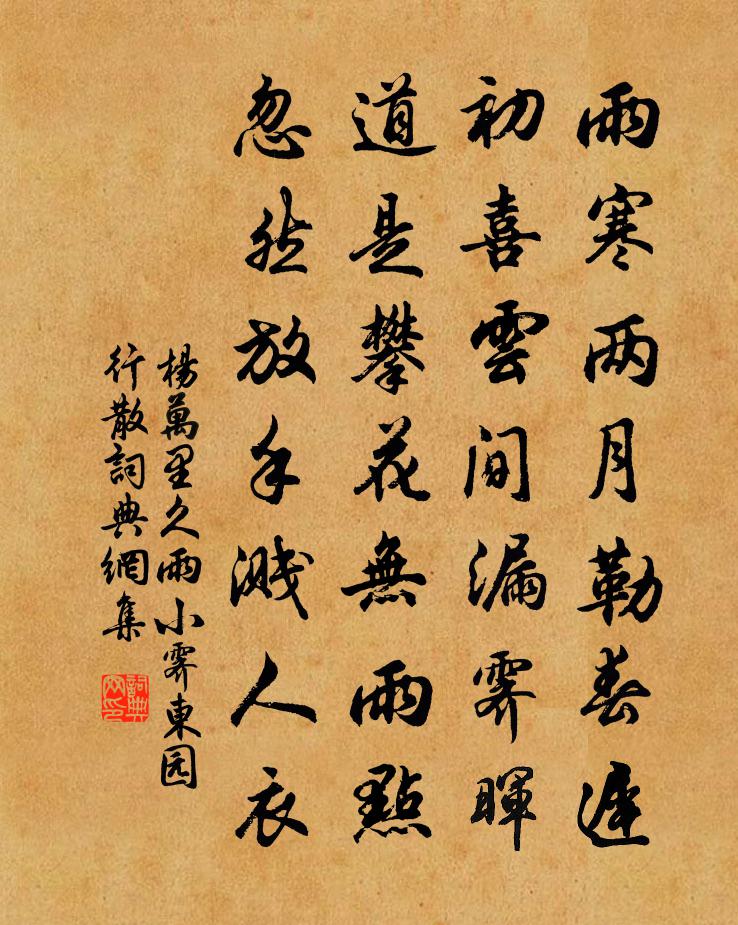 雨寒两月勒春遲
初喜雲間漏霽暉
道是攀花無雨點
忽然放手濺人衣
楊萬里久雨小霽東园
行散詞典網集
詞典网印